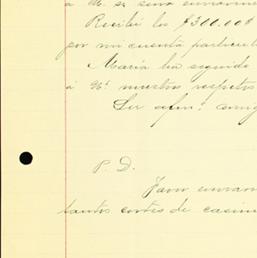 á U. se sirva
Recibí los $300.00
por mi cuenta particul
María ha seguido
á Ud. nuestros respetos
Su afmo. amig
P. D.
Favor enviar
tantos cortes de casim